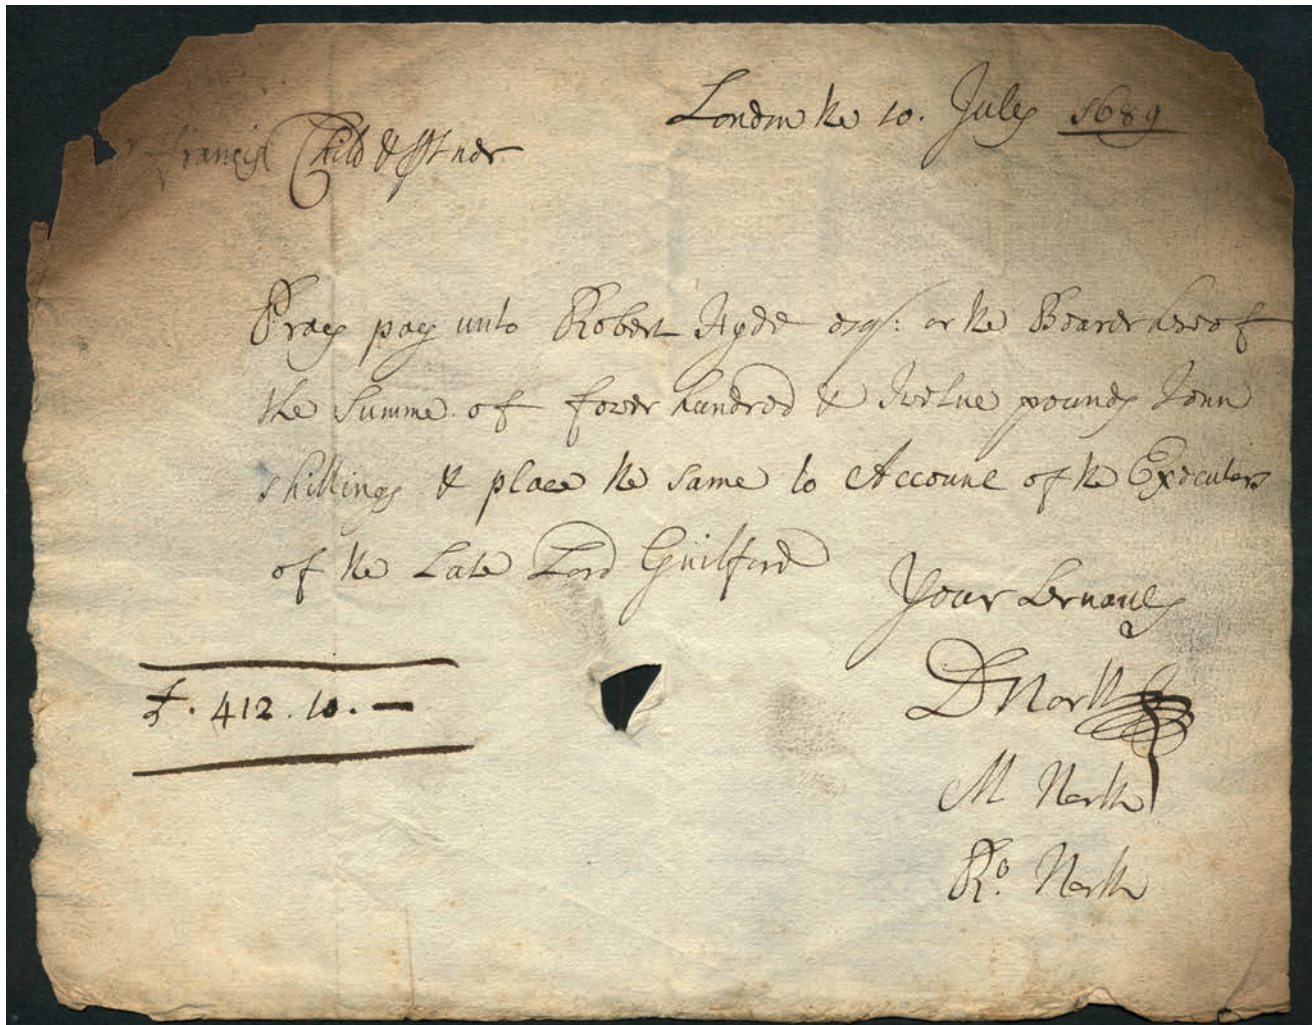 London the 10. July 1689
Francis Child & ptner
Pray pay unto Robert Hyde esqr: or the Bearer hereof
the Summe of fower hundred & Twelve pounds Tenn
shillings & place the same to Account of the Executors
of the Late Lord Guilford
Your Servants
D North
£. 412. 10. —
M North
Ro. North